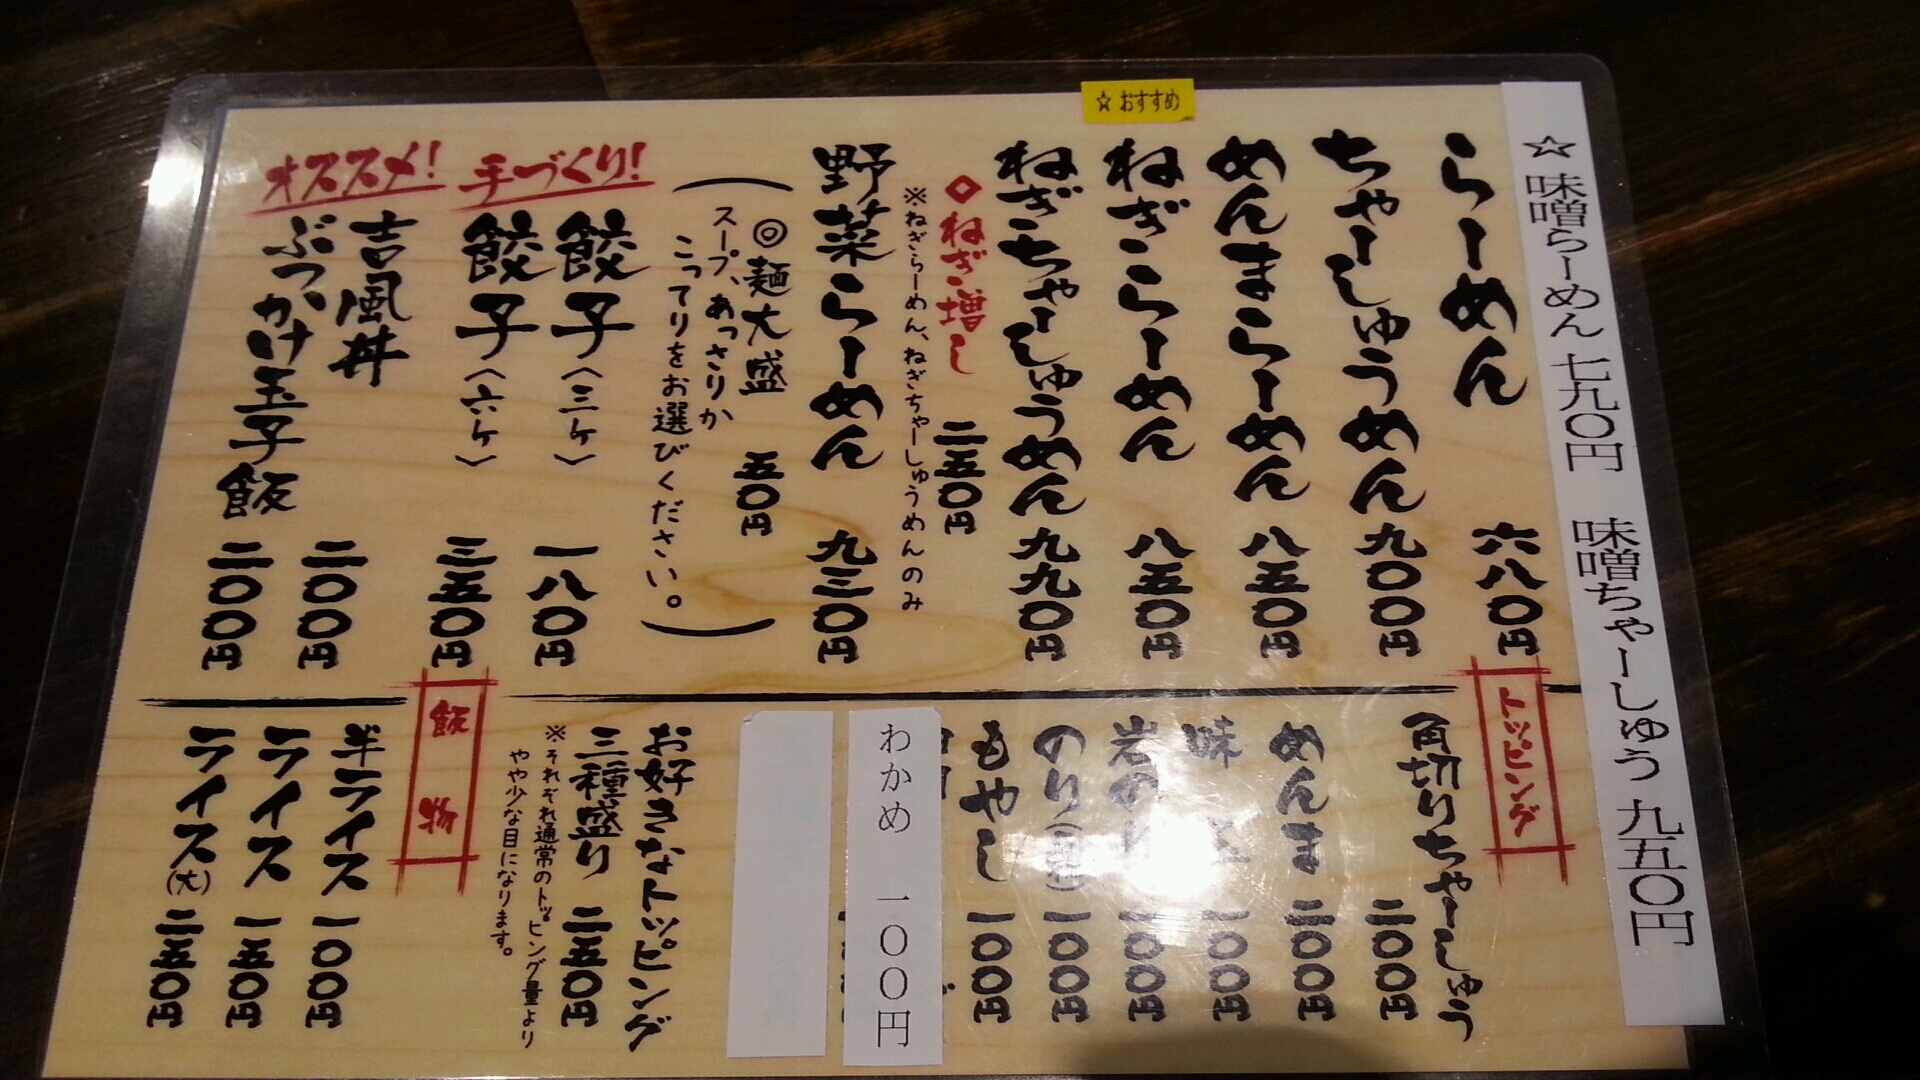 ☆味噌らーめん 七九〇円 味噌ちゃーしゅう 九五〇円
らーめん 六八〇円
ちゃーしゅうめん 九〇〇円
めんまらーめん 八五〇円
☆おすすめ
ねぎらーめん 八五〇円
ねぎちゃーしゅうめん 九九〇円
◇ねぎ増し 二五〇円
※ねぎらーめん、ねぎちゃーしゅうめんのみ
野菜らーめん 九三〇円
◎麺大盛 五〇円
スープ、あっさりか
こってりをお選びください。
手づくり!
餃子(三ケ) 一八〇円
餃子(六ケ) 三五〇円
オススメ!
吉風丼 二〇〇円
ぶっかけ玉子飯 二〇〇円
トッピング
角切りちゃーしゅう 二〇〇円
めんま 二〇〇円
味 一〇〇円
岩の 一〇〇円
のり 一〇〇円
もやし 一〇〇円
わかめ 一〇〇円
お好きなトッピング
三種盛り 二五〇円
※それぞれ通常のトッピング量より
やや少な目になります。
飯物
半ライス 一〇〇円
ライス 一五〇円
ライス(大) 二五〇円